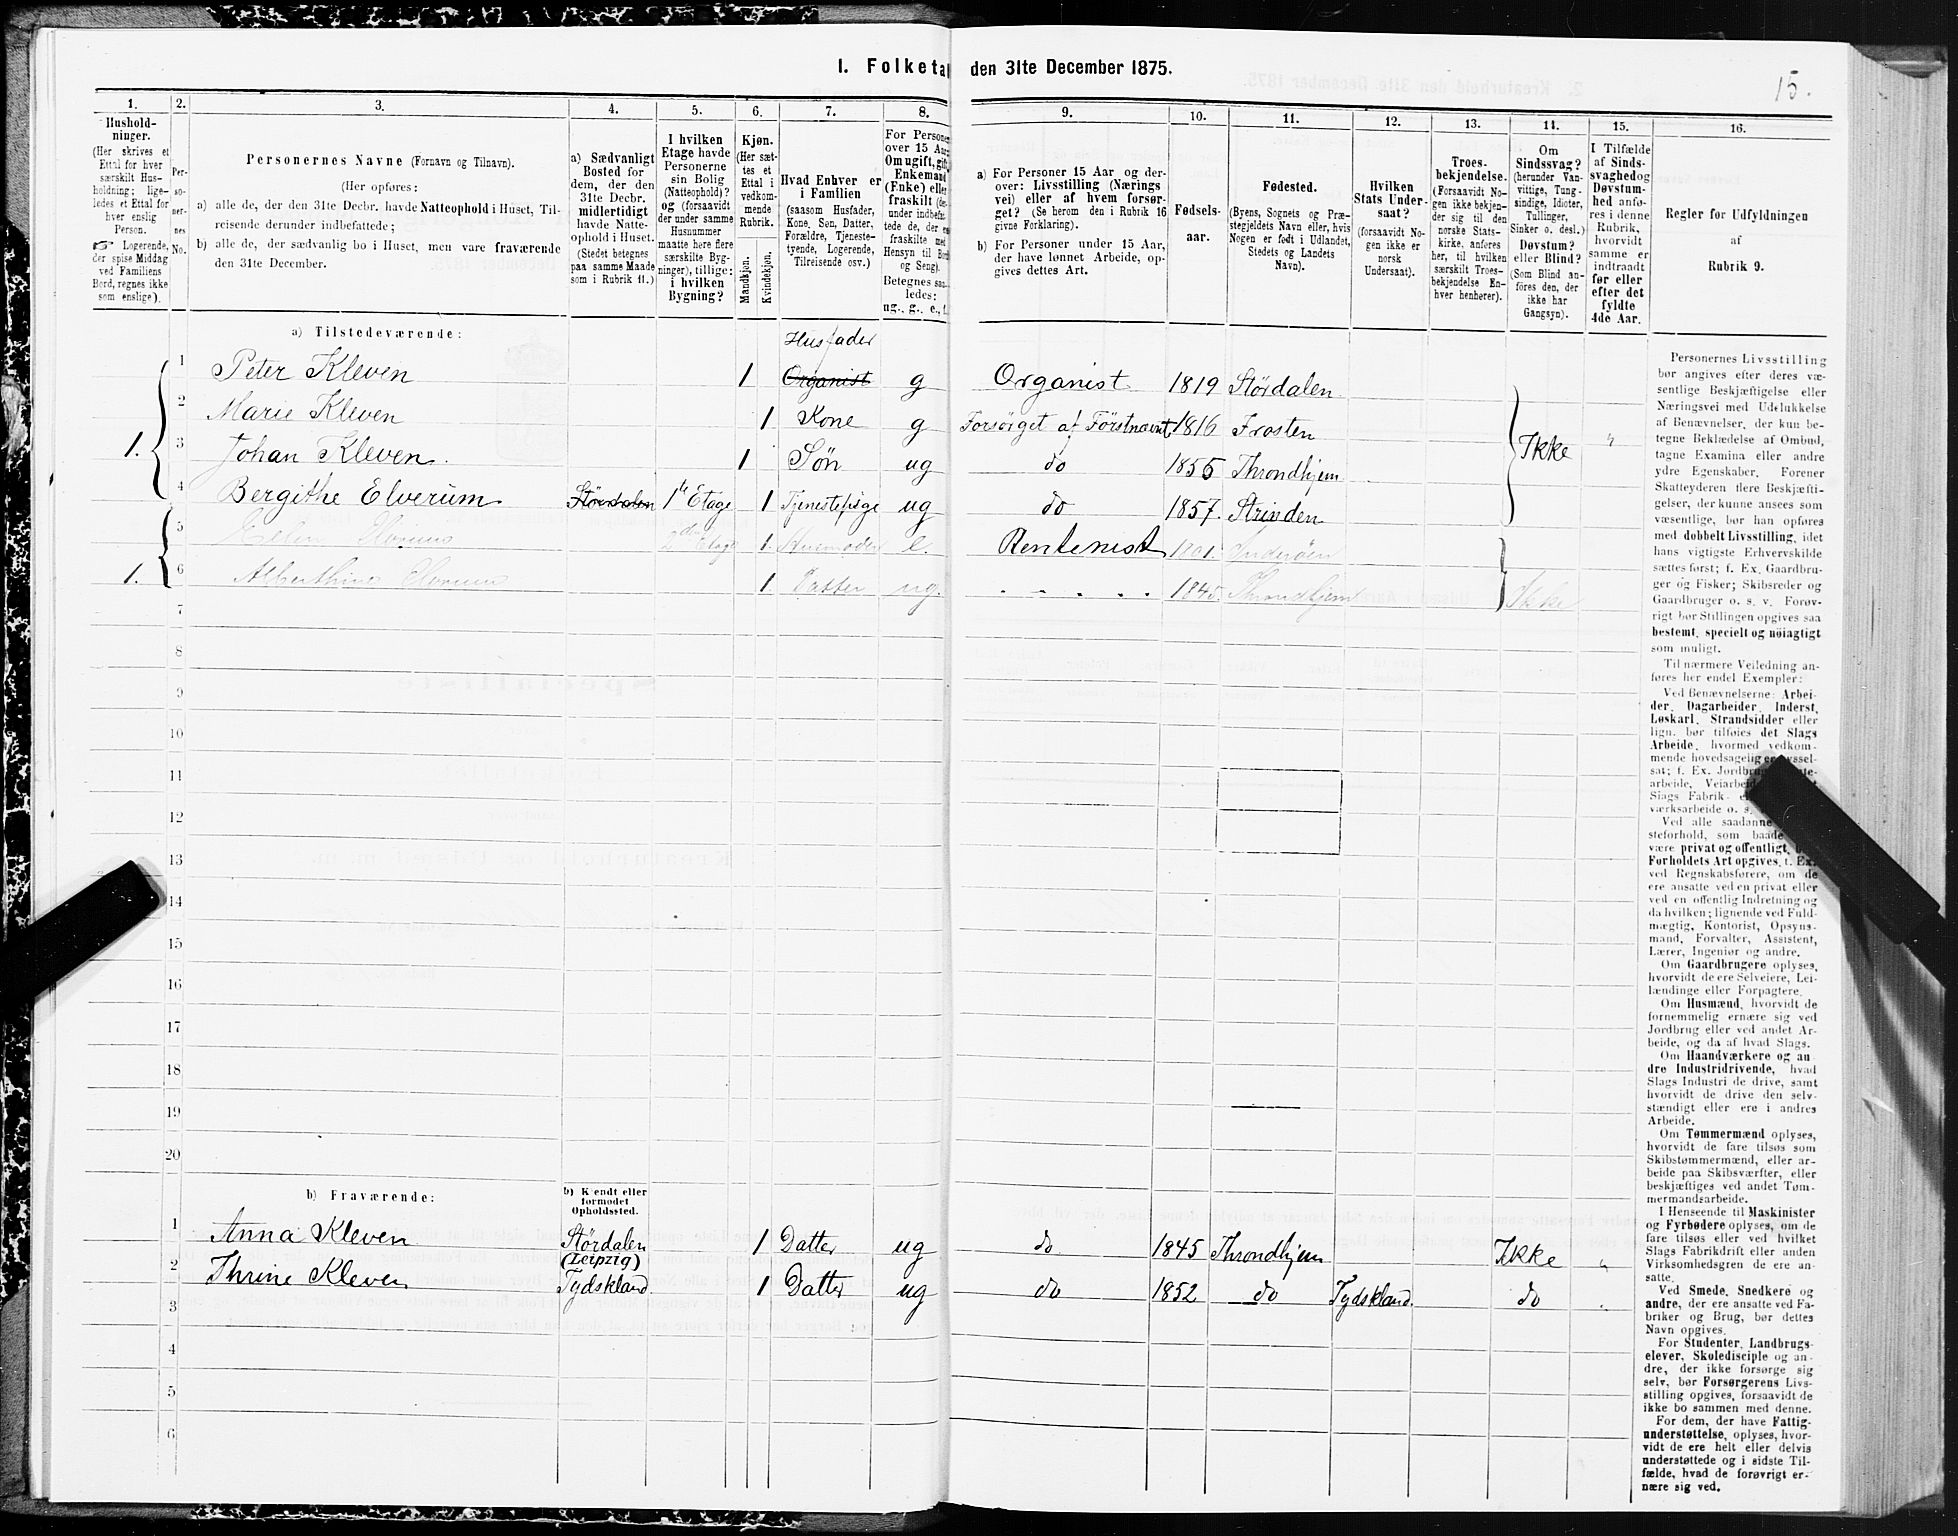 I. Folketa den 31te December 1875.
15.
1. 2. 3. 4. 5. 6. 7. 8. 9. 10. 11. 12. 13. 14. 15. 16.
Hushold-
ninger.
(Her skrives et
Ettal for hver
særskilt Hus-
holdning; lige-
ledes et Ettal for
hver enslig
Person.
☞ Logerende,
der spise Middag
ved Familiens
Bord, regnes ikke
som enslige).
Per-
so-
ner-
nes
No.
Personernes Navne (Fornavn og Tilnavn).
(Her opføres:
a) alle de, der den 31te Decbr. havde Natteophold i Huset, Til-
reisende derunder indbefattede;
b) alle de, der sædvanlig bo i Huset, men vare fraværende
den 31te December.
a) Sædvanligt
Bosted for
dem, der den
31te Decbr.
midlertidigt
havde Natte-
ophold i Huset.
(Stedet betegnes
paa samme Maade
som i Rubrik 11.)
I hvilken
Etage havde
Personerne
sin Bolig
(Natteophold)?
og (forsaavidt
der under samme
Husnummer
maatte høre flere
særskilte Byg-
ninger), tillige:
i hvilken
Bygning?
Kjøn.
(Her sæt-
tes et
Ettal i
vedkom-
mende
Rubrik.
Mandkjøn.
Kvindekjøn.
Hvad Enhver er
i Familien
(saasom Husfader,
Kone, Søn, Datter,
Forældre, Tjeneste-
tyende, Logerende,
Tilreisende osv.)
For Persone
over 15 Aar
Om ugift, gift,
Enkemand
(Enke) eller
fraskilt (der-
under indbefat-
tede de, der ere
fraskilte med
Hensyn til Bord
og Seng).
Betegnes saa-
ledes:
ug., g., e., f.
a) For Personer 15 Aar og der-
over: Livsstilling (Nærings
vei) eller af hvem forsør-
get? (Se herom den i Rubrik 16
givne Forklaring).
b) For Personer under 15 Aar,
der have lønnet Arbeide, op-
gives dettes Art.
Fødsels-
aar.
Fødested.
(Byens, Sognets og Præ-
stegjeldets Navn eller, hvis
Nogen er født i Udlandet,
Stedets og Landets
Navn).
Hvilken
Stats Under-
saat?
(forsaavidt No-
gen ikke er
norsk
Undersaat).
Troes-
bekjendelse.
(Forsaavidt No-
gen ikke bekjen-
der sig til den
norske Stats-
kirke, anføres
her, til hvilken
særskilt Troes-
bekjendelse En-
hver henhører).
Om
Sindssvag?
(herunder Van-
vittige, Tung-
sindige, Idioter,
Tullinger,
Sinker o. desl.)
Døvstum?
eller Blind?
(Som Blind an-
føres den, der
ikke har
Gangsyn).
I Tilfælde
af Sinds-
svaghed og
Døvstum-
hed anfø-
res i denne
Rubrik,
hvorvidt
samme er
indtraadt
før eller
efter det
fyldte
4de Aar.
Regler for Udfyldningen
af
Rubrik 9.
a) Tilstedeværende:
Husfader
1 Peter Kleven 1 Organist g Organist 1819 Stördalen
2 Marie Kleven 1 Kone g Forsörget af Förstnævnte 1816 Frosten
1. 3 Johan Kleven 1 Søn ug do 1855 Throndhjem Ikke "
4 Bergithe Elverum Stördalen 1ste Etage 1 Tjenestepige ug do 1857. Strinden
5 2den Etage 1. e. Rentenist 1801. Inderøen
1. 6 Alberthine 1. Datter ug. . . . . . 1845. Throndhjem Ikke
7
8
9
10
11
12
13
14
15
16
17
18
19
20
b) Fraværende:
b) Kjendt eller
formodet
Opholdssted.
1 Anna Kleven Stördalen 1 Datter ug do 1845 Throndhjem Ikke "
2 Thrine Kleven (Leipzig) Tydskland 1 Datter ug do 1852 do Tydskland. do "
3
4
5
6
Personernes Livsstilling
bør angives efter deres væ-
sentlige Beskjæftigelse eller
Næringsvei med Udelukkelse
af Benævnelser, der kun be-
tegne Beklædelse af Ombud,
tagne Examina eller andre
ydre Egenskaber. Forener
Skatteyderen flere Beskjæfti-
gelser, der kunne ansees som
væsentlige, bør han opføres
med dobbelt Livsstilling, idet
hans vigtigste Erhvervskilde
sættes først; f. Ex. Gaardbru-
ger og Fisker; Skibsreder og
Gaardbruger o. s. v. Forøv-
rigt bør Stillingen opgives saa
bestemt, specielt og nøiagtigt
som muligt.
Til nærmere Veiledning an-
føres her endel Exempler:
Ved Benævnelserne: Arbei-
der, Dagarbeider, Inderst,
Løskarl, Strandsidder eller
lign. bør tilføies det Slags
Arbeide, hvormed vedkom-
mende hovedsagelig er sysselsat; f. Ex. Jordbru
arbeide, Veiarbei
Slags Fabrik-
værksarbeide o. s.
Ved alle saadanne
steforhold, som baade
være privat og offentligt,
Forholdets Art opgives, f. Ex.
ved Regnskabsførere, om de
ere ansatte ved en privat eller
ved en offentlig Indretning og
da hvilken; lignende ved Fuld-
mægtig, Kontorist, Opsyns-
mand, Forvalter, Assistent,
Lærer, Ingeniør og andre.
Om Gaardbrugere oplyses,
hvorvidt de ere Selveiere, Lei-
lændinge eller Forpagtere.
Om Husmænd, hvorvidt de
fornemmelig ernære sig ved
Jordbrug eller ved andet Ar-
beide, og da af hvad Slags.
Om Haandværkere og an
dre Industridrivende, hvad
Slags Industri de drive, samt
hvorvidt de drive den selv-
stændigt eller ere i andres
Arbeide.
Om Tømmermænd oplyses,
hvorvidt de fare tilsøs som
Skibstømmermænd, eller ar-
beide paa Skibsværfter, eller
beskjæftiges ved andet Tøm-
mermandsarbeide.
I Henseende til Maskinister
og Fyrbødere oplyses, om de
fare tilsøs eller ved hvilket
Slags Fabrikdrift eller anden
Virksomhedsgren de ere an-
satte.
Ved Smede, Snedkere og
andre, der ere ansatte ved Fa-
briker og Brug, bør dettes
Navn opgives.
For Studenter, Landbrugs-
elever, Skoledisciple og an-
dre, der ikke forsørge sig
selv, bør Forsørgerens Livs-
stilling opgives, forsaavidt de
ikke bo sammen med denne.
For dem, der have Fattig-
understøttelse, oplyses, hvor-
vidt de ere helt eller delvis
understøttede og i sidste Til-
fælde, hvad de forøvrigt er-
nære sig ved.